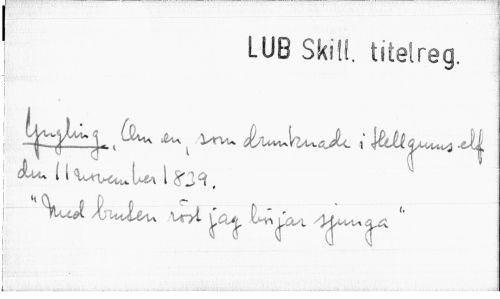 LUB Skill. titelreg.
Yngling, Om en, som drunknade i Hellgums elf
den 11 november 1839.
"Med bruten röst jag börjar sjunga"